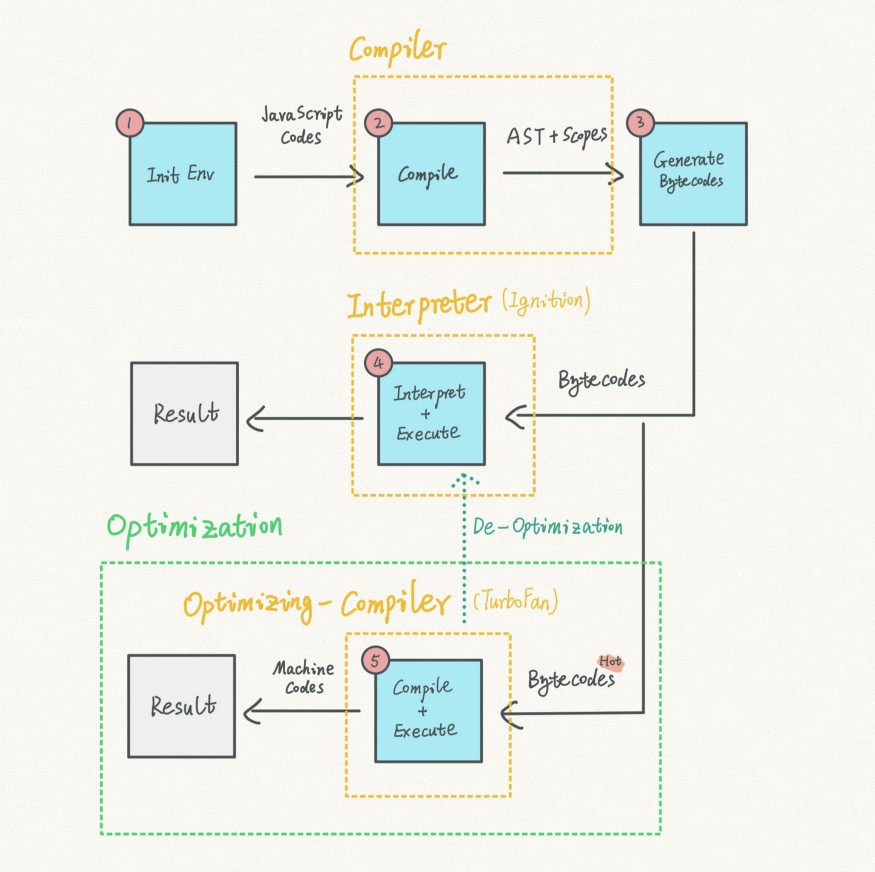 Compiler
1
Init Env
JavaScript
Codes
2
Compile
AST + Scopes
3
Generate
Bytecodes
Interpreter (Ignition)
Result
4
Interpret
+
Execute
Bytecodes
Optimization
De-Optimization
Optimizing-Compiler (TurboFan)
Result
Machine
Codes
5
Compile
+
Execute
Hot
Bytecodes